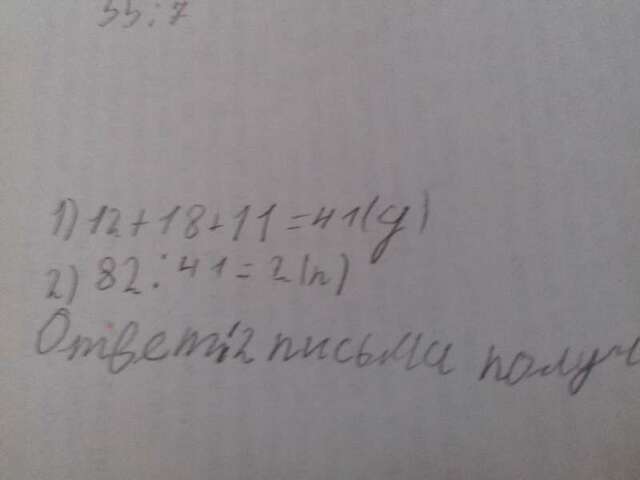 55:7
1) 12+18+11=41(у)
2) 82:41=2(п)
Ответ:2 письма получ